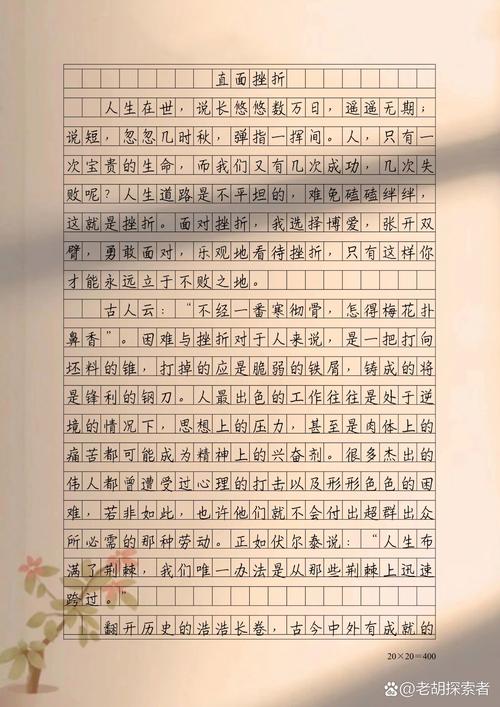 直面挫折
人生在世，说长悠悠数万日，遥遥无期；
说短，忽忽几时秋，弹指一挥间。人，只有一
次宝贵的生命，而我们又有几次成功，几次失
败呢？人生道路是不平坦的，难免磕磕绊绊，
这就是挫折。面对挫折，我选择博爱，张开双
臂，勇敢面对，乐观地看待挫折，只有这样你
才能永远立于不败之地。
古人云：“不经一番寒彻骨，怎得梅花扑
鼻香”。困难与挫折对于人来说，是一把打向
坯料的锥，打掉的应是脆弱的铁屑，铸成的将
是锋利的钢刀。人最出色的工作往往是处于逆
境的情况下，思想上的压力，甚至是肉体上的
痛苦都可能成为精神上的兴奋剂。很多杰出的
伟人都曾遭受过心理的打击以及形形色色的困
难，若非如此，也许他们就不会付出超群出众
所必需的那种劳动。正如伏尔泰说：“人生布
满了荆棘，我们唯一办法是从那些荆棘上迅速
跨过。”
翻开历史的浩浩长卷，古今中外有成就的
20×20=400
老胡探索者